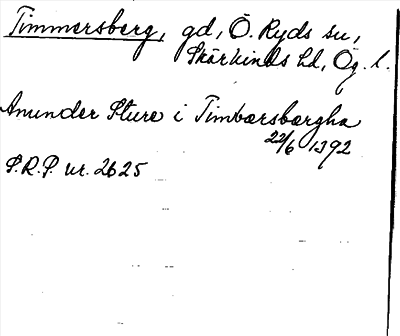 Timmersberg, gd, Ö. Ryds sn,
Skärkinds hd, Ög. l.
Anunder Sture i Timbærsbærgha
22/6 1392
S.R.P. nr. 2625